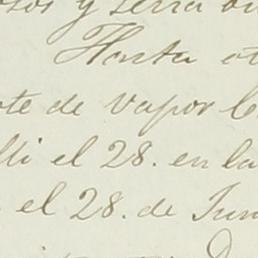 y será
Hasta ot
te de vapor C
lli el 28. en la
el 28. de Jun